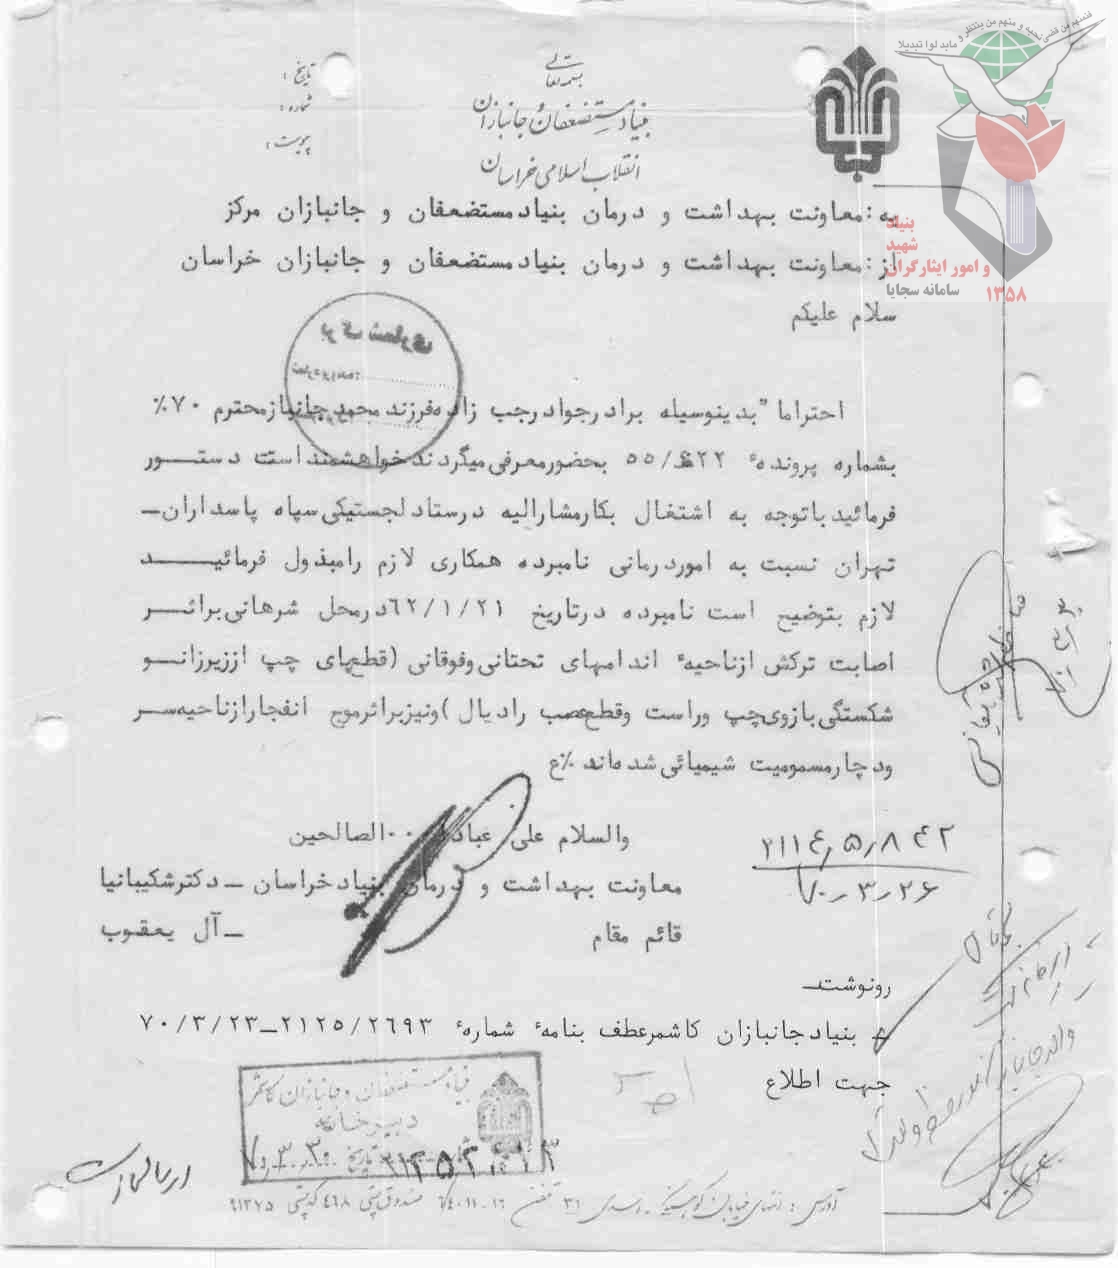 بسمه تعالی
بنیاد مستضعفان و جانبازان
انقلاب اسلامی خراسان
تاریخ :
شماره :
پیوست :
بنیاد
شهید
و امور ایثارگران
سامانه سجایا
۱۳۵۸
به : معاونت بهداشت و درمان بنیاد مستضعفان و جانبازان مرکز
از : معاونت بهداشت و درمان بنیاد مستضعفان و جانبازان خراسان
سلام علیکم
احتراما" بدینوسیله برادر جواد رجب زاده فرزند محمد جانباز محترم ۷۰%
بشماره پرونده بحضور معرفی میگردند خواهشمند است دستور
فرمائید با توجه به اشتغال بکار مشارالیه در ستاد لجستیکی سپاه پاسداران ـ
تهران نسبت به امور درمانی نامبرده همکاری لازم را مبذول فرمائید
لازم بتوضیح است نامبرده در تاریخ ۶۲/۱/۲۱ در محل شرهانی بر اثر
اصابت ترکش از ناحیهٔ اندامهای تحتانی و فوقانی (قطع پای چپ از زیر زانو
شکستگی بازوی چپ و راست و قطع عصب رادیال ) و نیز بر اثر موج انفجار از ناحیه سر
و دچار مسمومیت شیمیائی شده اند %ع
والسلام علی عباد ا... الصالحین
معاونت بهداشت و درمان بنیاد خراسان ـ دکتر شکیبانیا
قائم مقام ـ آل یعقوب
۲۱۱۴/۵/۸۴۲
۷۰/۳/۲۶
رونوشت
بنیاد جانبازان کاشمر عطف بنامهٔ شمارهٔ ۲۱۲۵/۲۶۹۳ـ۷۰/۳/۲۳
جهت اطلاع
بنیاد مستضعفان و جانبازان کاشمر
دبیرخانه
تاریخ ۷۰/۳/۳۰